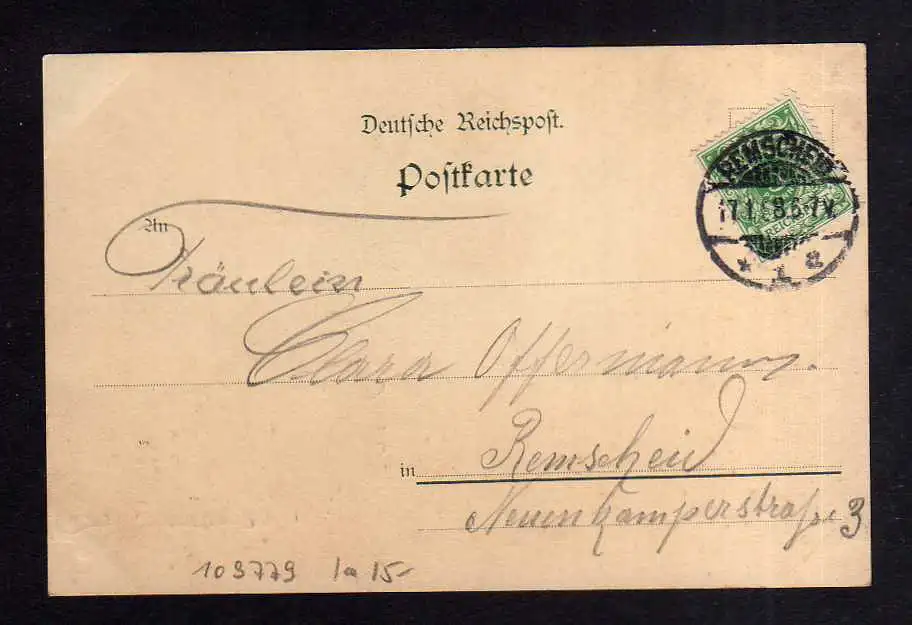 Deutsche Reichspost.
Postkarte
REMSCHEID
17.1. 8.6-7V.
* 1 a
REICHSPOST
An
Fräulein
Clara Offermann.
in Remscheid
Neuenkamperstraße 3
109779 1a 15-